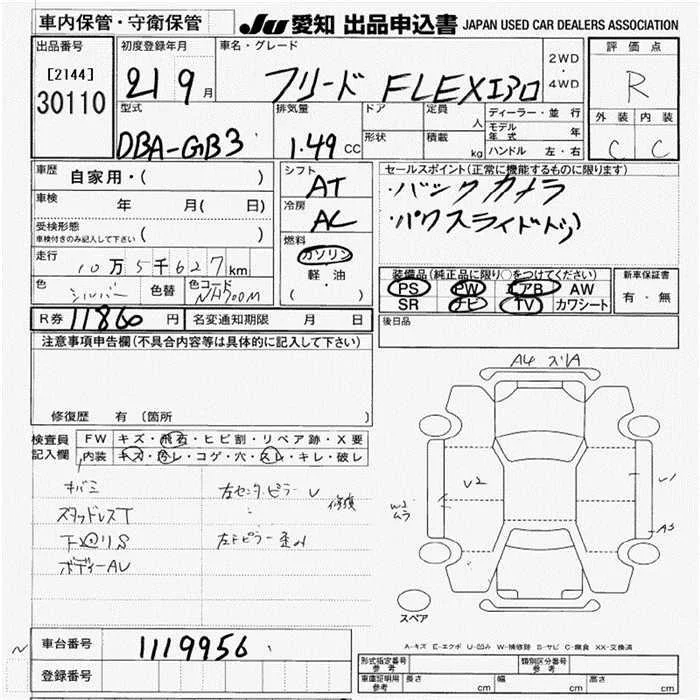 車内保管・守衛保管
JU 愛知 出品申込書 JAPAN USED CAR DEALERS ASSOCIATION
出品番号
[2144]
30110
初度登録年月
21 9月
車名・グレード
フリード FLEXエアロ
2WD
・
4WD
評価点
R
外装 内装
C C
型式
DBA-GB3
排気量
1.49 CC
ドア
形状
定員
人
積載
kg
ディーラー・並行
モデル年式 年
ハンドル 左・右
車歴
自家用・( )
車検
年 月( 日)
受検形態
車検付きのみ記入して下さい ( )
走行
10万5千627km
色 シルバー
色替
色コード NH700M
シフト
AT
冷房
AC
燃料
ガソリン
軽・油
( )
セールスポイント(正常に機能するものに限ります)
・バックカメラ
・パワースライドドア
装備品(純正品に限り○をつけてください)
PS PW エアB AW
SR ナビ TV カワシート
新車保証書
有・無
R券 11860 円
名変通知期限 月 日
後日品
注意事項申告欄(不具合内容等は具体的に記入して下さい)
修復歴 有 (箇所 )
検査員
記入欄
FW キズ・飛石・ヒビ割・リペア跡・X要
内装 キズ・汚レ・コゲ・穴・スレ・キレ・破レ
キバミ
スタッドレスT
下廻りS
ボディーAU
左センターピラーU
修復
左Fピラー歪み
A4 スリA
U2
U1
A3
W3
ムラ
スペア
A-キズ E-エクボ U-凹み W-補修跡 S-サビ C-腐食 XX-交換済
車台番号
1119956
登録番号
形式指定番号
参考
類別区分番号
参考
車庫証明用
参考
長さ cm
幅 cm
高さ cm